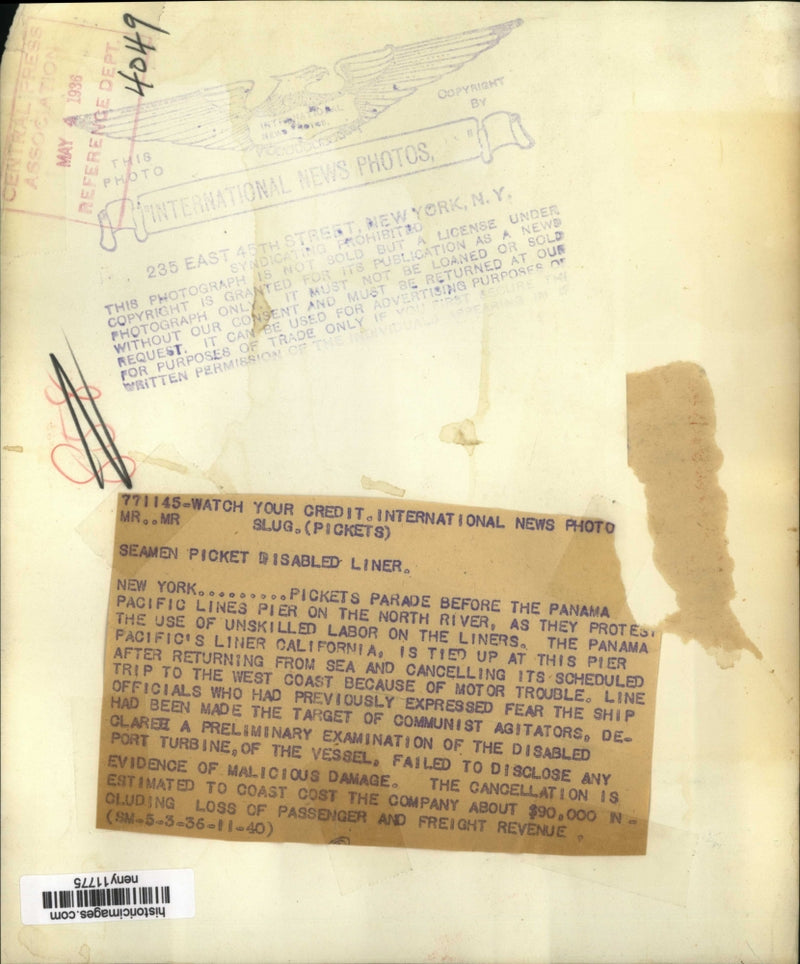 CENTRAL PRESS
ASSOCATION
MAY 4 1936
REFERENCE DEPT.
4049
THIS
PHOTO
COPYRIGHT
BY
NEWS PHOTOS.
"INTERNATIONAL NEWS PHOTOS,"
235 EAST 45TH STREET, NEW YORK, N. Y.
SYNDICATING PROHIBITED
THIS PHOTOGRAPH IS NOT SOLD BUT A LICENSE UNDER
COPYRIGHT IS GRANTED FOR ITS PUBLICATION AS A NEWS
PHOTOGRAPH ONLY. IT MUST NOT BE LOANED OR SOLD
WITHOUT OUR CONSENT AND MUST BE RETURNED AT OUR
REQUEST. IT CAN BE USED FOR ADVERTISING PURPOSES OR
FOR PURPOSES OF TRADE ONLY IF YOU FIRST SECURE THE
WRITTEN PERMISSION OF THE INDIVIDUALS APPEARING IN IT
771145-WATCH YOUR CREDIT.INTERNATIONAL NEWS PHOTO
MR..MR SLUG.(PICKETS)
SEAMEN PICKET DISABLED LINER.
NEW YORK.........PICKETS PARADE BEFORE THE PANAMA
PACIFIC LINES PIER ON THE NORTH RIVER, AS THEY PROTEST
THE USE OF UNSKILLED LABOR ON THE LINERS. THE PANAMA
PACIFIC'S LINER CALIFORNIA, IS TIED UP AT THIS PIER
AFTER RETURNING FROM SEA AND CANCELLING ITS SCHEDULED
TRIP TO THE WEST COAST BECAUSE OF MOTOR TROUBLE. LINE
OFFICIALS WHO HAD PREVIOUSLY EXPRESSED FEAR THE SHIP
HAD BEEN MADE THE TARGET OF COMMUNIST AGITATORS, DE-
CLARED A PRELIMINARY EXAMINATION OF THE DISABLED
PORT TURBINE,OF THE VESSEL, FAILED TO DISCLOSE ANY
EVIDENCE OF MALICIOUS DAMAGE. THE CANCELLATION IS
ESTIMATED TO COAST COST THE COMPANY ABOUT $90,000 IN-
CLUDING LOSS OF PASSENGER AND FREIGHT REVENUE.
(SM-5-3-36-11-40)
historicimages.com
neny11775